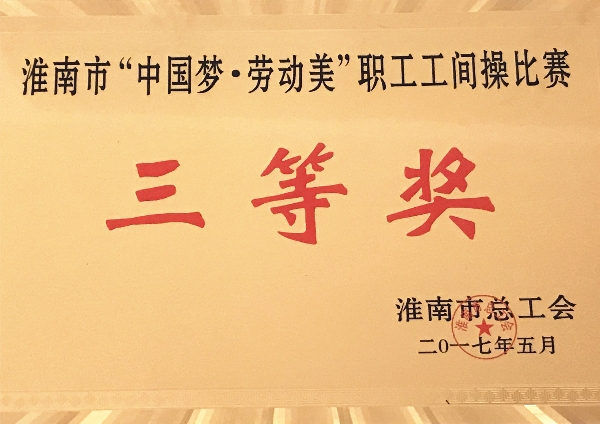 淮南市“中国梦·劳动美”职工工间操比赛
三等奖
淮南市总工会
二〇一七年五月